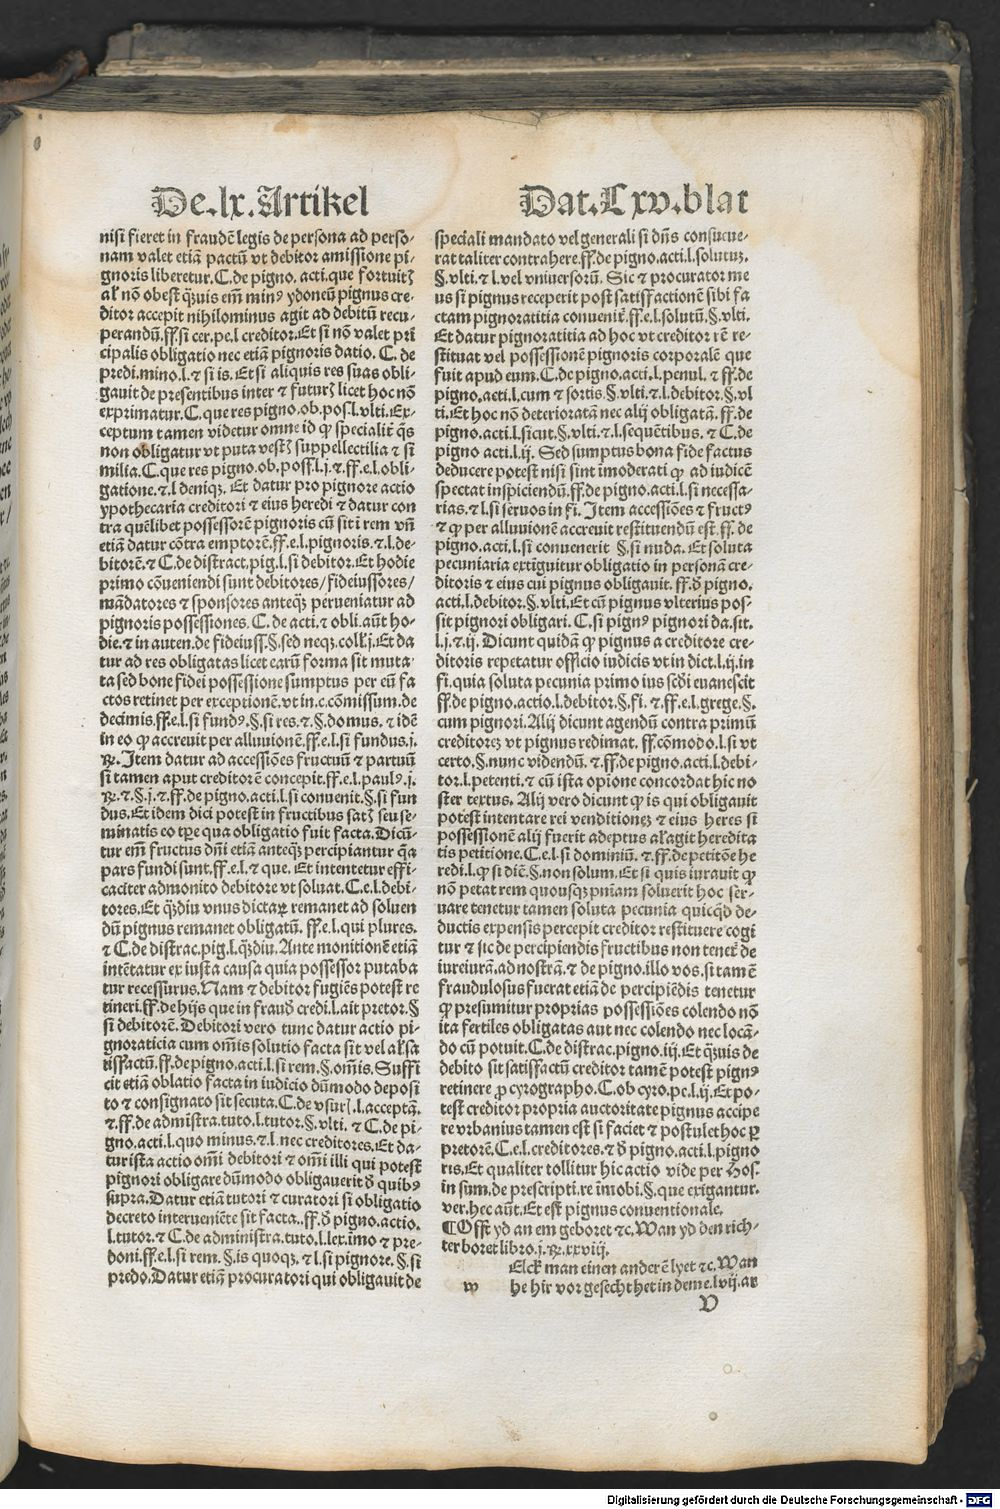 De.lx.Artikel
Dat.Cxv.blat
nisi fieret in fraudē legis de persona ad perso-
nam valet etiā pactū vt debitor amissione pi-
gnoris liberetur.C.de pigno.acti.que fortuitꝭ
al' nō obest qͣuis em̄ minꝰ ydoneū pignus cre-
ditor accepit nihilominus agit ad debitū recu-
perandū.ff.si cer.pe.l creditor.Et si nō valet prī
cipalis obligatio nec etiā pignoris datio. C. de
predi.mino.l.⁊ si is. Et si aliquis res suas obli-
gauit de presentibus inter ⁊ futurꝭ licet hoc nō
exprimatur.C.que res pigno.ob.pos.l.vlti.Ex-
ceptum tamen videtur omne id ꝙ specialit̄ q̄s
non obligatur vt puta vestꝭ suppellectilia ⁊ si
milia.C.que res pigno.ob.poss.l.j.⁊ ff.e.l.obli-
gatione.⁊.l deniqꝫ. Et datur pro pignore actio
ypothecaria creditori ⁊ eius heredi ⁊ datur con
tra quēlibet possessorē pignoris cū sit ī rem vn̄
etiā datur cōtra emptorē.ff.e.l.pignoris.⁊.l.de-
bitorē.⁊ C.de distract.pig.l.si debitor.Et hodie
primo cōueniendi sunt debitores/fideiussores/
mādatores ⁊ sponsores anteqͣꝫ perueniatur ad
pignoris possessiones. C. de acti.⁊ obli.aūt ho-
die.⁊ in auten.de fideiuss.§.sed neqꝫ.coll.j.Et da
tur ad res obligatas licet earū forma sit muta-
ta sed bone fidei possessione sumptus per eū fa
ctos retinet per exceptionē.vt in.c.cōmissum.de
decimis.ff.e.l.si fundꝰ.§.si res.⁊.§.domus. ⁊ idē
in eo ꝙ accreuit per alluvionē.ff.e.l.si fundus.j.
℞. Item datur ad accessiōes fructuū ⁊ partuū
si tamen aput creditorē concepit.ff.e.l.paulꝰ.j.
℞.⁊.§.j.⁊.ff.de pigno.acti.l.si conuenit.§.si fun
dus.Et idem dici potest in fructibus satꝭ seu se-
minatis eo tp̄e qua obligatio fuit facta.Dicū-
tur em̄ fructus dn̄i etiā anteqͣꝫ percipiantur qͣa
pars fundi sunt.ff.e.l.⁊ que. Et intentetur effi-
caciter admonito debitore vt soluat.C.e.l.debi-
tores.Et qͣꝫdiu vnus dictaꝝ remanet ad soluen
dū pignus remanet obligatū. ff.e.l.qui plures.
⁊ C.de distrac.pig.l.qͣꝫdiu. Ante monitionē etiā
intētatur ex iusta causa quia possessor putaba
tur recessurus.Nam ⁊ debitor fugiēs potest re
tineri.ff.de hijs que in fraud̄ credi.l.ait pretor.§
si debitorē.Debitori vero tunc datur actio pi-
gnoraticia cum om̄is solutio facta sit vel al' sa
tisfactū.ff.de pigno.acti.l.si rem.§.om̄is. Suffi
cit etiā oblatio facta in iudicio dūmodo deposi
to ⁊ consignato sit secuta.C.de vsurꝭ.l.acceptā.
⁊.ff.de admistra.tuto.l.tutor.§.vlti. ⁊ C.de pi-
gno.acti.l.quo minus.⁊.l.nec creditores.Et da-
tur ista actio om̄i debitori ⁊ om̄i illi qui potest
pignori obligare dūmodo obligauerit d̄ quibꝰ
supra.Datur etiā tutori ⁊ curatori si obligatio
decreto interueniēte sit facta..ff.d̄ pigno.actio.
l.tutor.⁊ C.de administra.tuto.l.lex.imo ⁊ pre-
doni.ff.e.l.si rem.§.is quoqꝫ.⁊ l.si pignore.§.si
predo.Datur etiā procuratori qui obligauit de
speciali mandato vel generali si dn̄s consueue-
rat taliter contrahere.ff.de pigno.acti.l.solutuꝫ.
§.vlti.⁊ l.vel vniuersorū. Sic ⁊ procurator me
us si pignus receperit post satisfactionē sibi fa
ctam pignoratitia conuenit̄.ff.e.l.solutū.§.vlti.
Et datur pignoratitia ad hoc vt creditor rē re-
stituat vel possessionē pignoris corporalē que
fuit apud eum.C.de pigno.acti.l.penul.⁊ ff.de
pigno.acti.l.cum ⁊ sortis.§.vlti.⁊ l.debitor.§.vl
ti.Et hoc nō deterioratā nec alij obligatā.ff.de
pigno.acti.l.sicut.§.vlti.⁊.l.sequētibus. ⁊ C.de
pigno acti.l.ij. Sed sumptus bona fide factus
deducere potest nisi sint īmoderati ꝙ ad iudicē
spectat inspiciendū.ff.de pigno.acti.l.si necessa-
rias.⁊ l.si seruos in fi. Item accessiōes ⁊ fructꝰ
⁊ ꝙ per alluvionē accreuit restituendū est.ff.de
pigno.acti.l.si conuenerit §.si nuda. Et soluta
pecuniaria extīguitur obligatio in personā cre-
ditoris ⁊ eius cui pignus obligauit. ff.d̄ pigno.
acti.l.debitor.§.vlti.Et cū pignus vlterius pos-
sit pignori obligari. C.si pignꝰ pignori da.sit.
l.j.⁊ ij. Dicunt quidā ꝙ pignus a creditore cre-
ditoris repetatur officio iudicis vt in dict.l.ij.in
fi.quia soluta pecunia primo ius scd̄i euanescit
ff.de pigno.actio.l.debitor.§.fi. ⁊ ff.e.l.grege.§.
cum pignori. Alij dicunt agendū contra primū
creditoreꝫ vt pignus redimat. ff.cōmodo.l.si vt
certo.§.nunc videndū. ⁊ ff.de pigno.acti.l.debi-
tor.l.petenti.⁊ cū ista opione concordat hic no
ster textus. Alij vero dicunt ꝙ is qui obligauit
potest intentare rei venditioneꝫ ⁊ eius heres si
possessionē alij fuerit adeptus al' agit heredita
tis petitione.C.e.l.si dominiū. ⁊.ff.de petitōe he
redi.l.ꝙ si diē.§.non solum.Et si quis iurauit ꝙ
nō petat rem quousqꝫ pn̄iam soluerit hoc ser-
uare tenetur tamen soluta pecunia quicqͥd de-
ductis expensis percepit creditor restituere cogi
tur ⁊ sic de percipiendis fructibus non tenet̄ de
iureiurā.ad nostrā.⁊ de pigno.illo vos.si tamē
fraudulosus fuerat etiā de percipiēdis tenetur
ꝙ presumitur proprias possessiōes colendo nō
ita fertiles obligatas aut nec colendo nec locā-
do cū potuit.C.de distrac.pigno.iij.Et qͣuis de
debito sit satisfactū creditor tamē potest pignꝰ
retinere ꝓ cyrographo.C.ob cyro.pe.l.ij.Et po-
test creditor propria auctoritate pignus accipe
re vrbanius tamen est si faciet ⁊ postulet hoc ꝑ
pretorē.C.e.l.creditores.⁊ d̄ pigno.acti.l.pigno
ris.Et qualiter tollitur hic actio vide per Hos.
in sum.de prescripti.re imobi.§.que exigantur.
ver.hec aūt.Et est pignus conuentionale.
¶Offt yd an em geboret ⁊c.Wan yd den rich-
ter boret libro.j.℞.xxviij.
Elck man einen anderē lyet ⁊c.Wan
w
he hir vor gesecht het in deme.lvij.ar
V
Digitalisierung gefördert durch die Deutsche Forschungsgemeinschaft - DFG